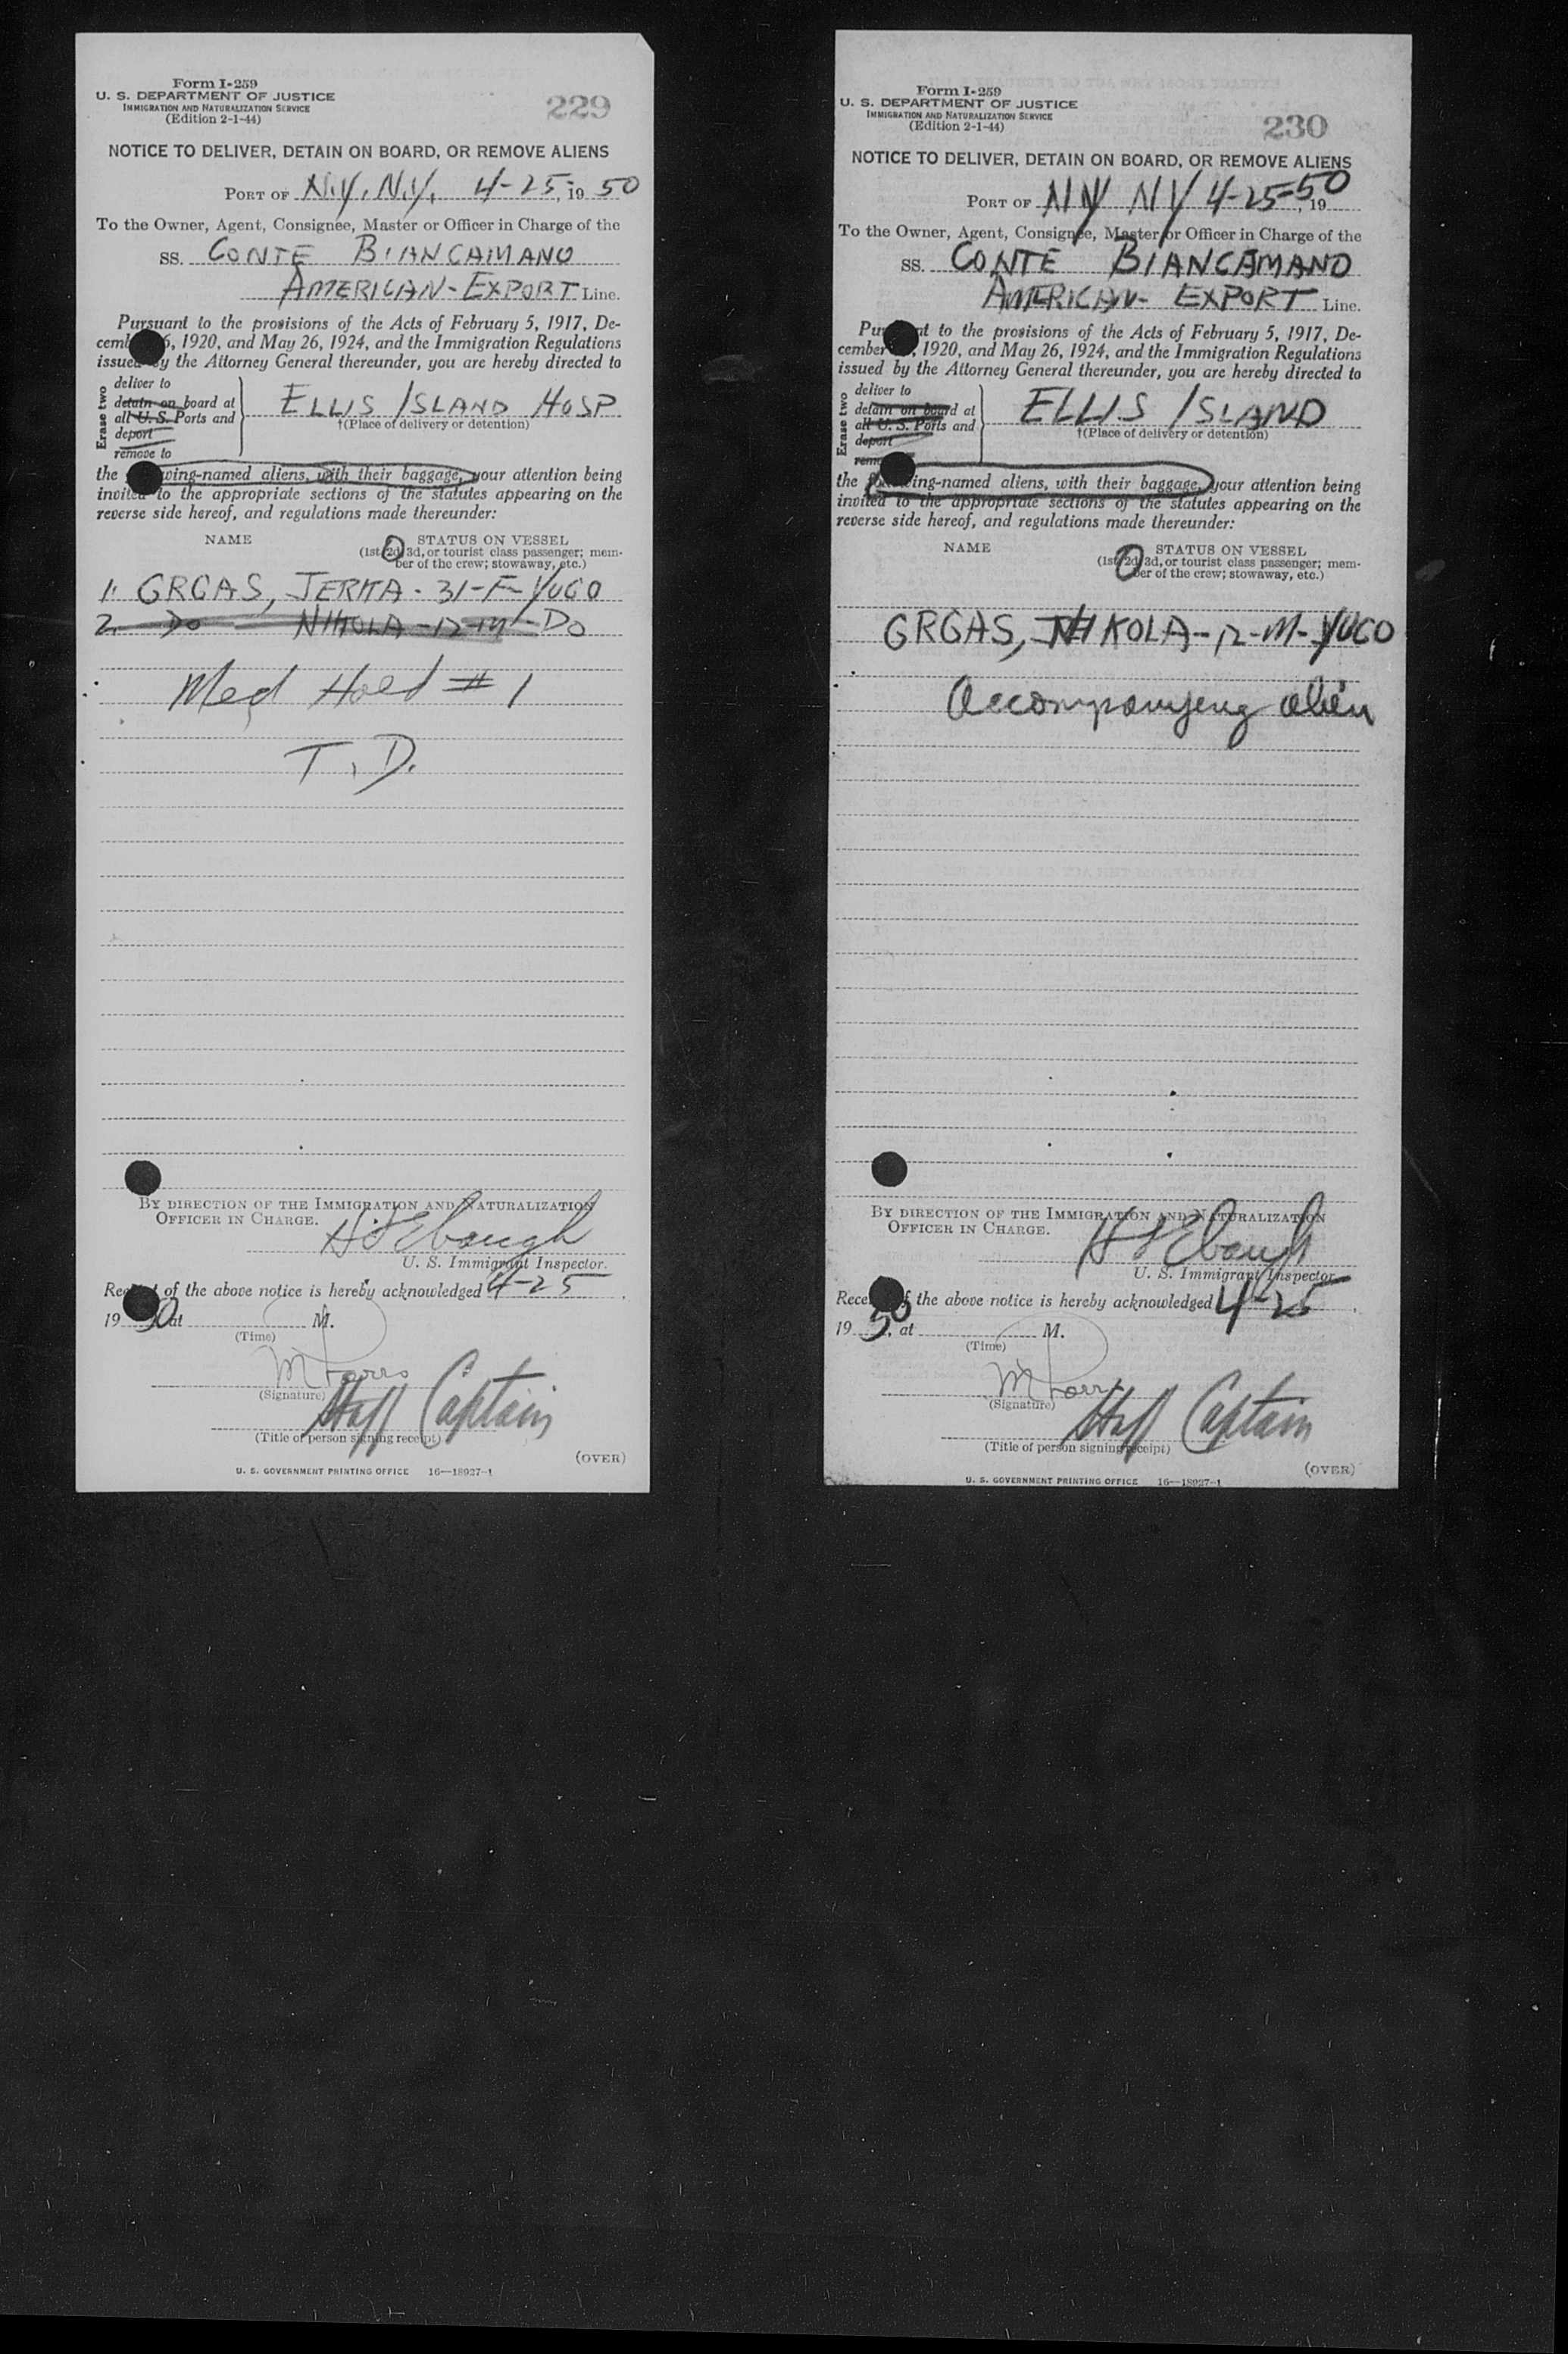 Form I-259
U. S. DEPARTMENT OF JUSTICE
IMMIGRATION AND NATURALIZATION SERVICE
(Edition 2-1-44)
229
NOTICE TO DELIVER, DETAIN ON BOARD, OR REMOVE ALIENS
PORT OF N.Y. N.Y. 4-25-, 19 50
To the Owner, Agent, Consignee, Master or Officer in Charge of the
SS. CONTE BIANCAMANO
AMERICAN-EXPORT Line.
Pursuant to the provisions of the Acts of February 5, 1917, De-
6, 1920, and May 26, 1924, and the Immigration Regulations
issued by the Attorney General thereunder, you are hereby directed to
Erase two
deliver to
detain on board at
all U. S. Ports and
deport
remove to
ELLIS ISLAND HOSP
†(Place of delivery or detention)
the following-named aliens, with their baggage, your attention being
invited to the appropriate sections of the statutes appearing on the
reverse side hereof, and regulations made thereunder:
NAME STATUS ON VESSEL
(1st, 2d, 3d, or tourist class passenger; mem-
ber of the crew; stowaway, etc.)
1. GRGAS, - 31-F-YUGO
2. Do NIKOLA-12-M-Do
Med Hold #1
T.D.
BY DIRECTION OF THE IMMIGRATION AND NATURALIZATION
OFFICER IN CHARGE.
Ebaugh
U. S. Immigrant Inspector.
Receipt of the above notice is hereby acknowledged 4-25
19 50 at M.
(Time)
(Signature)
Staff Captain
(Title of person signing receipt)
(OVER)
U. S. GOVERNMENT PRINTING OFFICE 16—18927-1
Form I-259
U. S. DEPARTMENT OF JUSTICE
IMMIGRATION AND NATURALIZATION SERVICE
(Edition 2-1-44)
230
NOTICE TO DELIVER, DETAIN ON BOARD, OR REMOVE ALIENS
PORT OF NY NY 4-25-50, 19
To the Owner, Agent, Consignee, Master or Officer in Charge of the
SS. CONTE BIANCAMANO
AMERICAN-EXPORT Line.
Pursuant to the provisions of the Acts of February 5, 1917, De-
cember , 1920, and May 26, 1924, and the Immigration Regulations
issued by the Attorney General thereunder, you are hereby directed to
Erase two
deliver to
detain on board at
all U. S. Ports and
deport
remove
ELLIS ISLAND
†(Place of delivery or detention)
the following-named aliens, with their baggage, your attention being
invited to the appropriate sections of the statutes appearing on the
reverse side hereof, and regulations made thereunder:
NAME STATUS ON VESSEL
(1st, 2d, 3d, or tourist class passenger; mem-
ber of the crew; stowaway, etc.)
GRGAS, NIKOLA-12-M-YUGO
Accompanying alien
BY DIRECTION OF THE IMMIGRATION AND NATURALIZATION
OFFICER IN CHARGE.
Ebaugh
U. S. Immigrant Inspector.
Receipt of the above notice is hereby acknowledged 4-25
19 50, at M.
(Time)
(Signature)
Staff Captain
(Title of person signing receipt)
(OVER)
U. S. GOVERNMENT PRINTING OFFICE 16—18927-1